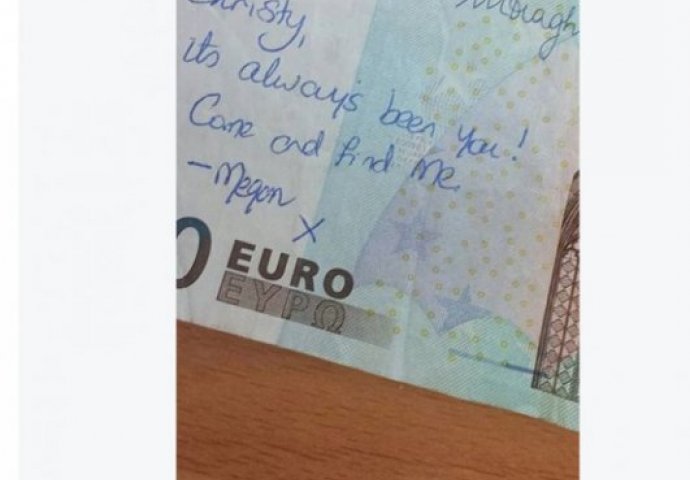 Christy,
its always been you!
Come and find me.
- Megan
X
0 EURO
ΕΥΡΩ